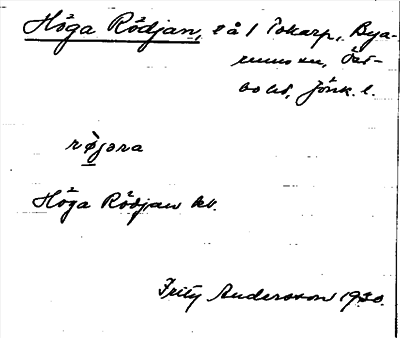 Höga Rödjan, l å 1 Tokarp, Bya-
rums sn, Öst-
bo hd, Jönk. l.
rø̀jəra
Höga Rödjan kv.
Fritz Andersson 1930.